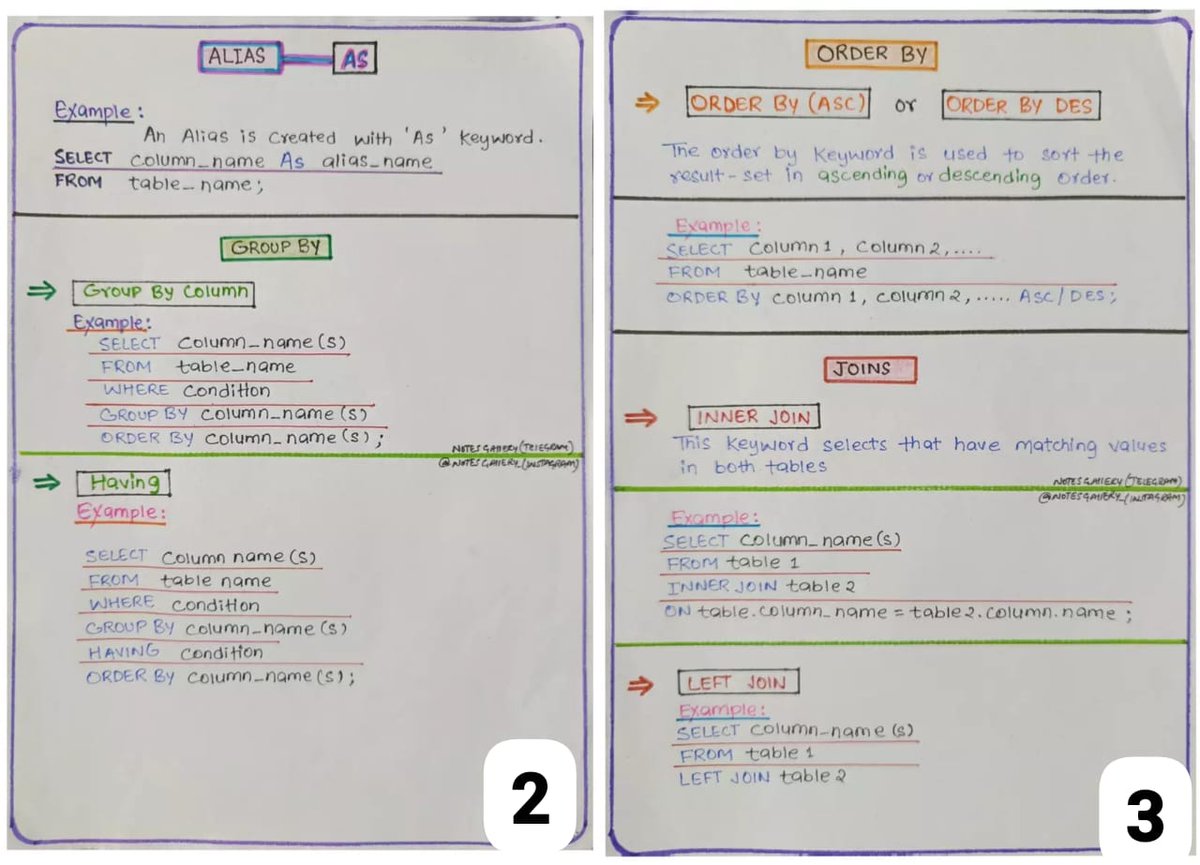 ALIAS AS
Example:
An Alias is created with 'As' Keyword.
SELECT column_name As alias_name
FROM table_name;
GROUP BY
⇒ Group By Column
Example:
SELECT column_name(s)
FROM table_name
WHERE condition
GROUP BY column_name(s)
ORDER BY column_name(s);
NOTES GALLERY (TELEGRAM)
@NOTES GALLERY_(INSTAGRAM)
⇒ Having
Example:
SELECT column name(s)
FROM table name
WHERE condition
GROUP BY column_name(s)
HAVING condition
ORDER BY column_name(s);
2
ORDER BY
⇒ ORDER BY (ASC) or ORDER BY DES
The order by keyword is used to sort the
result-set in ascending or descending order.
Example:
SELECT column1, column2,....
FROM table_name
ORDER BY column1, column2,..... ASC/DES;
JOINS
⇒ INNER JOIN
This keyword selects that have matching values
in both tables
NOTES GALLERY (TELEGRAM)
@NOTES GALLERY_(INSTAGRAM)
Example:
SELECT column_name(s)
FROM table 1
INNER JOIN table 2
ON table.column_name = table2.column.name;
⇒ LEFT JOIN
Example:
SELECT column_name(s)
FROM table 1
LEFT JOIN table 2
3